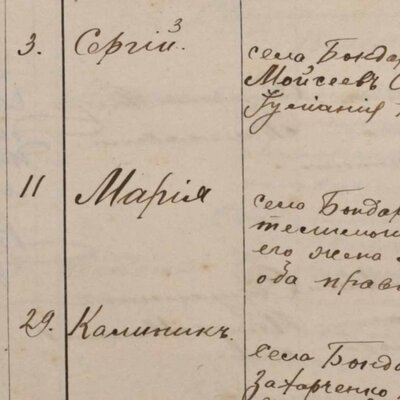 3. Сергій. 3
села Бонда
Моисеевъ С
Іуліанія
11 Марія
село Бондар
его жена
оба прав
29. Калиникъ.
села Бонда
Захарченко